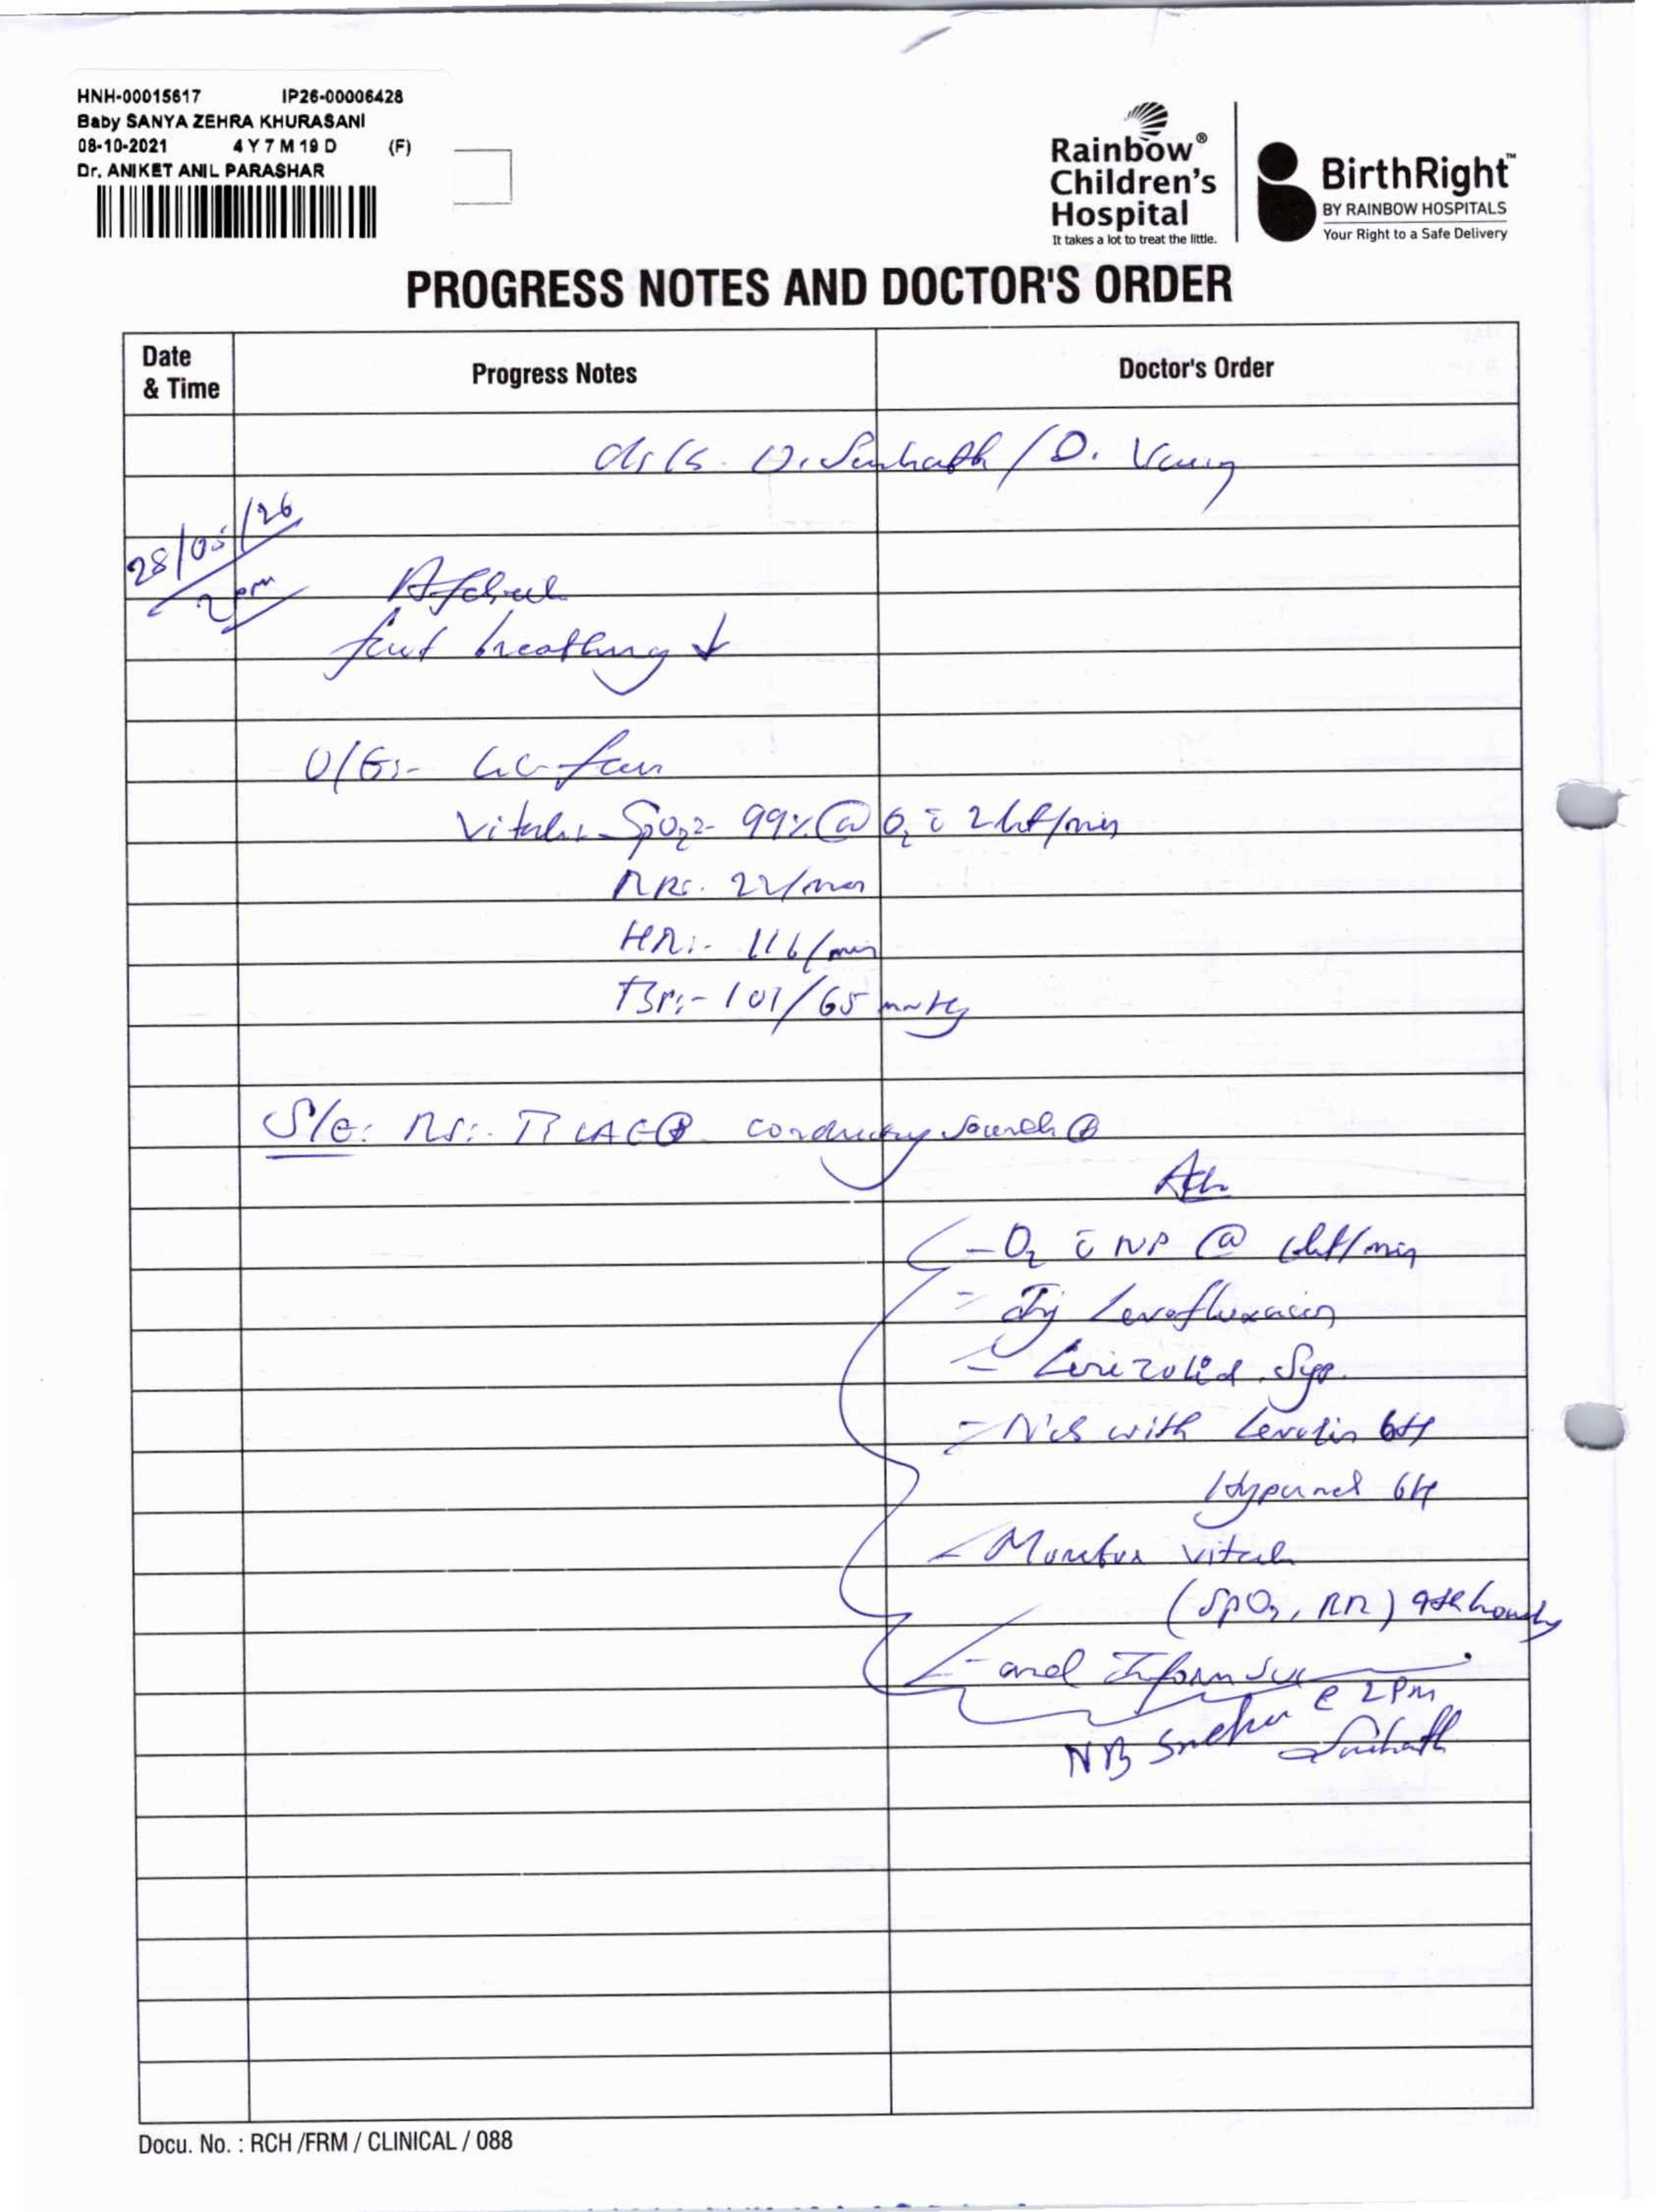 HNH-00015617 IP26-00006428
Baby SANYA ZEHRA KHURASANI
08-10-2021 4 Y 7 M 19 D (F)
Dr. ANIKET ANIL PARASHAR
Rainbow®
Children's
Hospital
It takes a lot to treat the little.
BirthRight™
BY RAINBOW HOSPITALS
Your Right to a Safe Delivery
PROGRESS NOTES AND DOCTOR'S ORDER
Date & Time Progress Notes Doctor's Order
28/05/26
2pm
Afebrile
fast breathing ↓
O/E:- GC-fair
Vitals:- SpO2- 99% @ O2 c̄ 2 lit/min
RR:- 22/min
HR:- 116/min
BP:- 101/65 mmHg
S/E: RS:- B/L AE⊕ conducting sounds ⊕
Adv
- O2 c̄ NP @ lit/min
- Inj Levofloxacin
- Linezolid Syp.
- Neb with Levolin 6H
Hypernel 6H
- Monitor vitals
(SpO2, RR) hourly
- and Inform
NB Sneha @ 2pm
Docu. No. : RCH /FRM / CLINICAL / 088